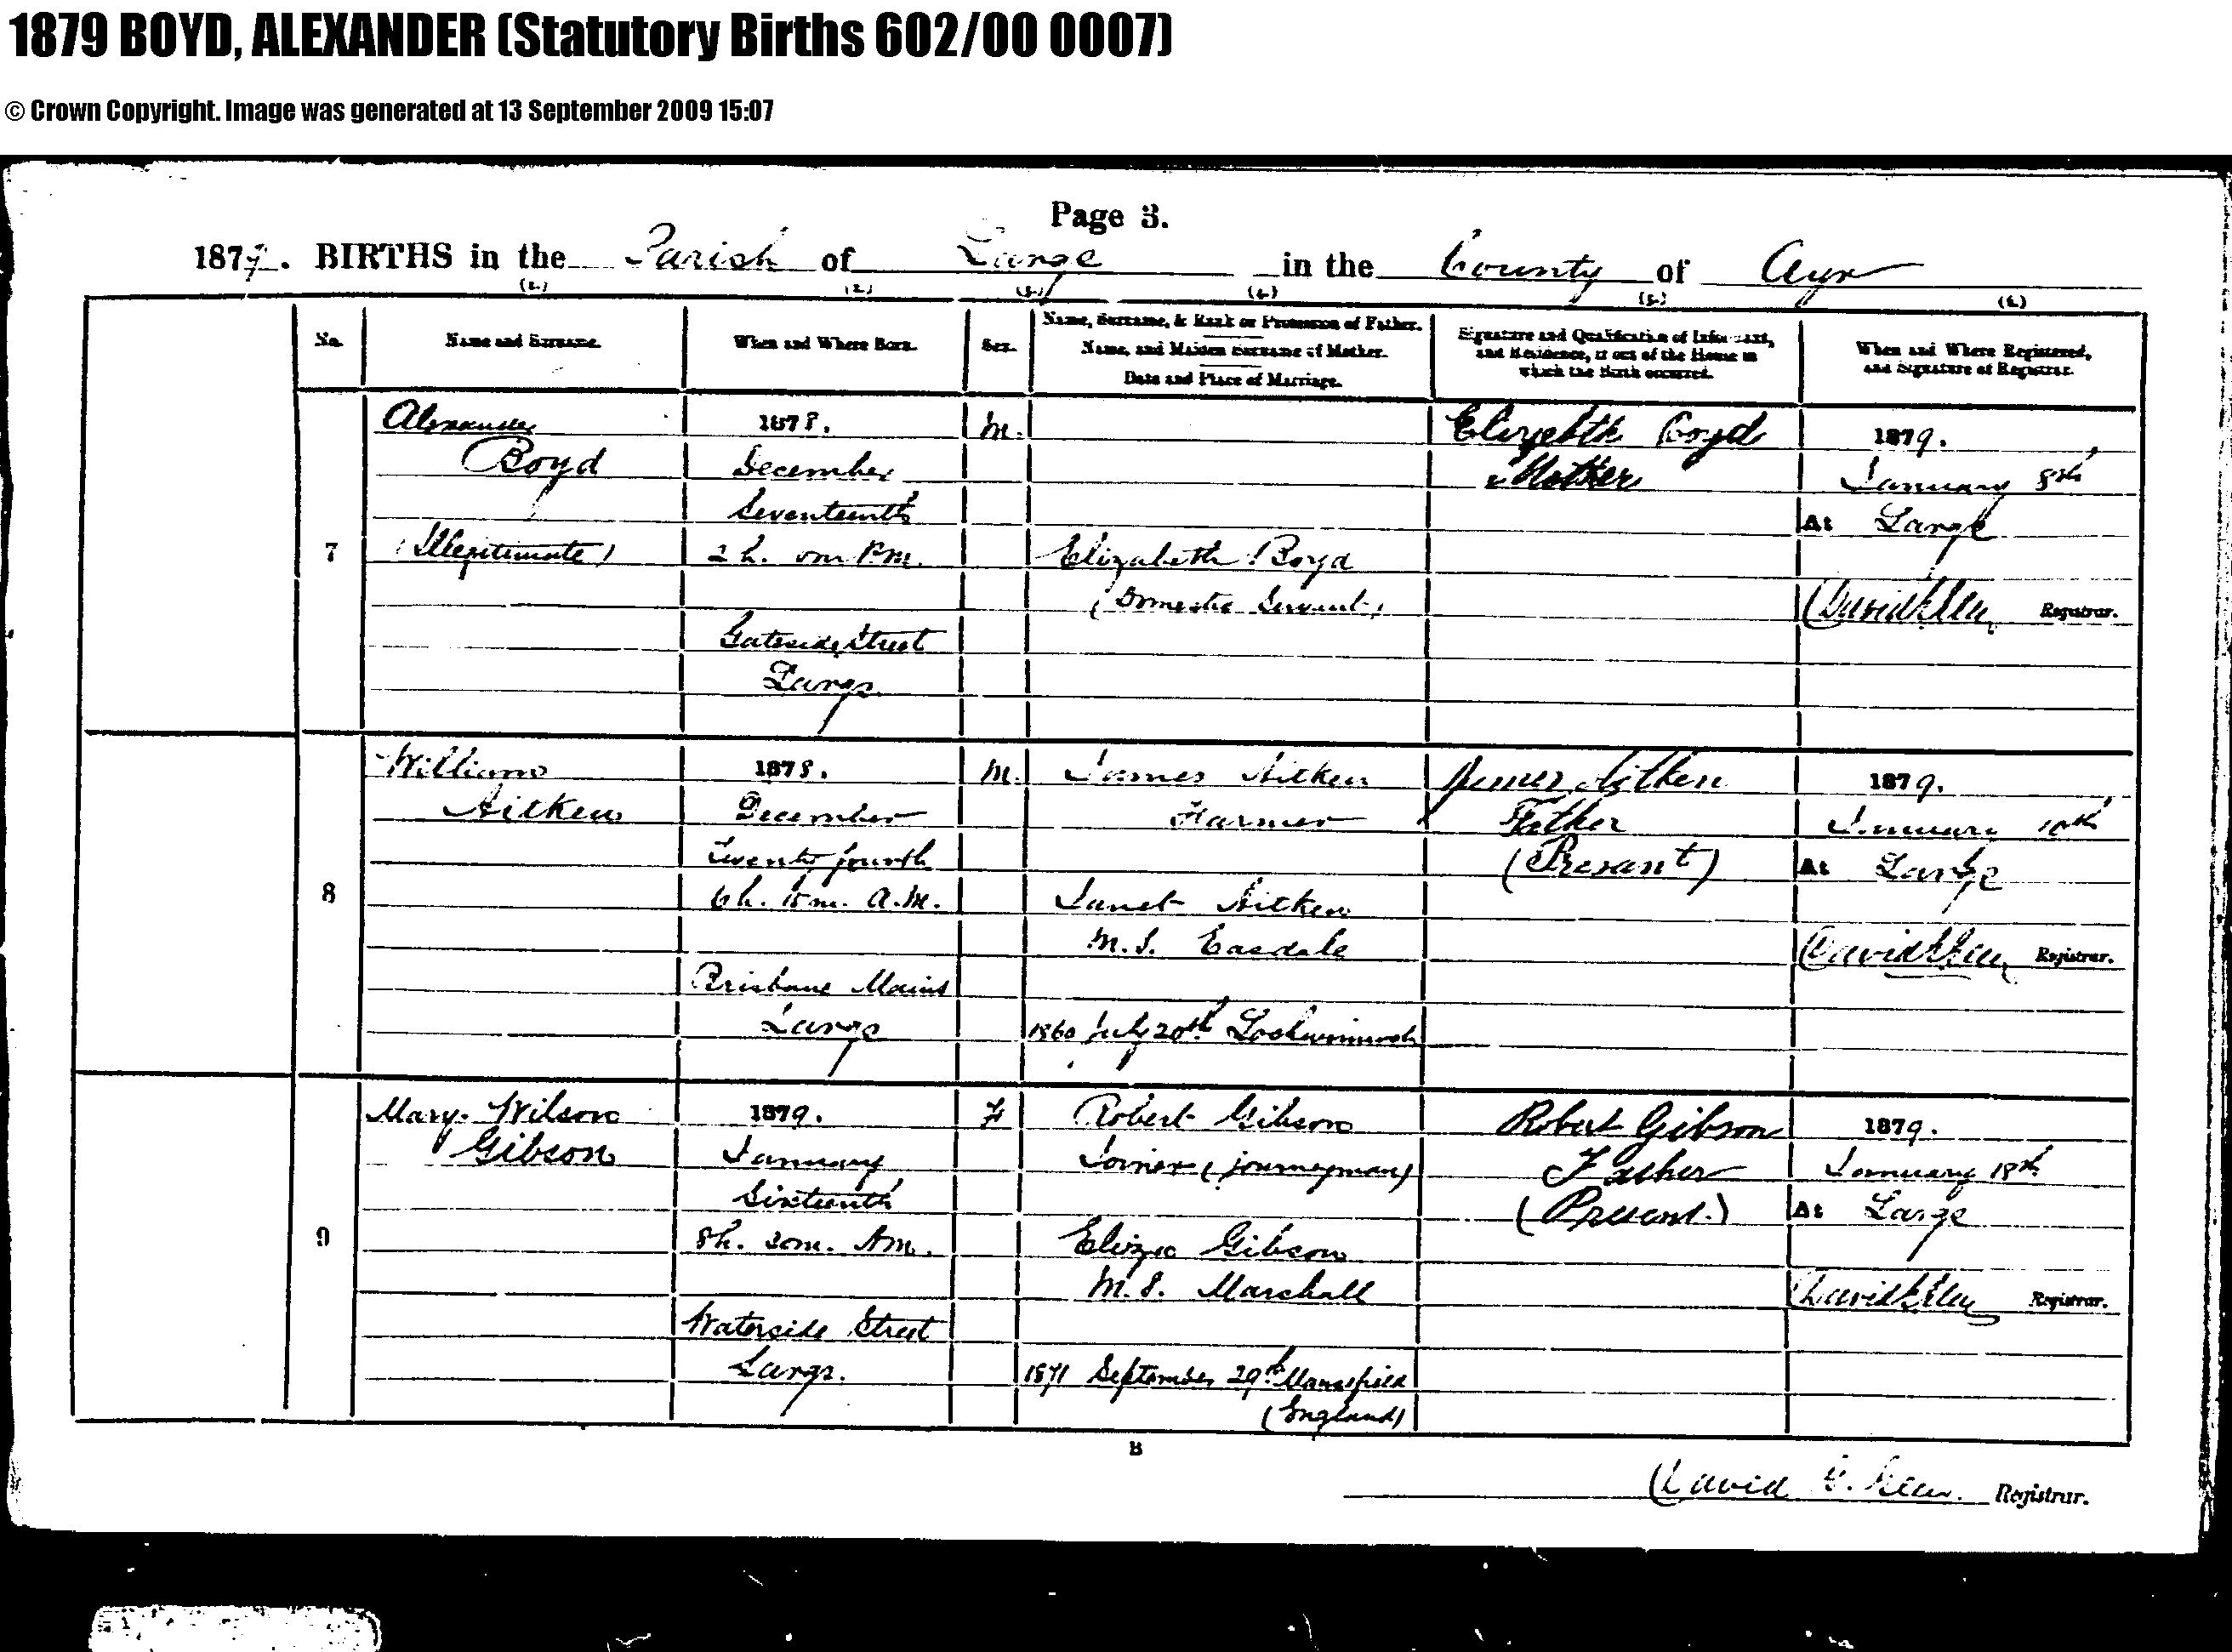 1879 BOYD, ALEXANDER (Statutory Births 602/00 0007)
© Crown Copyright. Image was generated at 13 September 2009 15:07
Page 3.
1879. BIRTHS in the Parish of Largs in the County of Ayr
(1.) (2.) (3.) (4.) (5.) (6.)
No.
Name and Surname.
When and Where Born.
Sex.
Name, Surname, & Rank or Profession of Father.
Name, and Maiden Surname of Mother.
Date and Place of Marriage.
Signature and Qualification of Informant,
and Residence, if out of the House in
which the Birth occurred.
When and Where Registered,
and Signature of Registrar.
7
Alexander
Boyd
(Illegitimate)
1878.
December
Seventeenth
2 h. 0m P.M.
Gateside Street
Largs
M.
Elizabeth Boyd
(Domestic Servant)
Elizabeth Boyd
Mother
1879.
January 8th
At Largs
David
Registrar.
8
William
Aitken
1878.
December
Twenty fourth
6 h. 15 m. A.M.
Brisbane Mains
Largs
M.
James Aitken
Farmer
Janet Aitken
M.S. Easdale
1860 July 20th Lochwinnoch
James Aitken
Father
(Present)
1879.
January 10th
At Largs
David
Registrar.
9
Mary Wilson
Gibson
1879.
January
Sixteenth
8 h. 20m. A.M.
Waterside Street
Largs.
F
Robert Gibson
Joiner (journeyman)
Eliza Gibson
M.S. Marshall
1871 September 29th Mansfield
(England)
Robert Gibson
Father
(Present.)
1879.
January 18th
At Largs
David
Registrar.
B
David
Registrar.